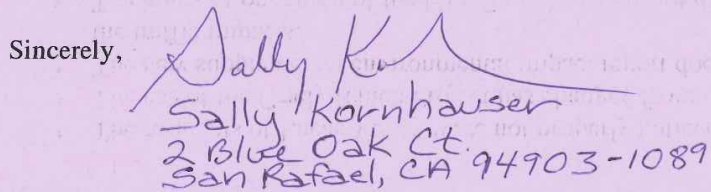 Sincerely,
Sally K
Sally Kornhauser
2 Blue Oak Ct.
San Rafael, CA 94903-1089